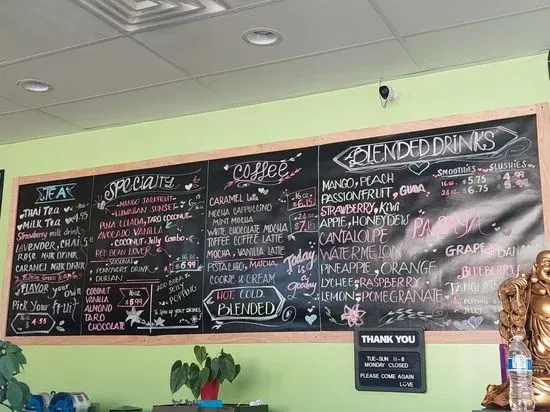 TEA
THAI TEA
MILK TEA
4.95
STRAWBERRY MILK
LAVENDER, CHAI
ROSE MILK DRINK
CARAMEL MILK DRINK
FLAVOR YOUR OWN
PICK YOUR FRUIT
4.95
SPECIALTY
MANGO JACKFRUIT
HAWAIIAN SUNSET
PINA COLADA, TARO COCONUT
AVOCADO VANILLA
COCONUT JELLY COMBO
RED BEAN LOVER
PENNYWORT DRINK
DURIAN
5.99
COCONUT
VANILLA
ALMOND
TARO
CHOCOLATE
16 OZ
$5.99
ADD BOBA
POPPING
COFFEE
CARAMEL LATTE
MOCHA CAPPUCCINO
MINT MOCHA
WHITE CHOCOLATE MOCHA
TOFFEE COFFEE LATTE
MOCHA, VANILLA LATTE
PISTACHIO, MATCHA
COOKIE & CREAM
HOT, COLD,
BLENDED
16 OZ
6.15
24 OZ
7.15
TODAY
IS
A
GOOD
DAY
BLENDED DRINKS
SMOOTHIES SLUSHIES
16 OZ 5.75 4.99
24 OZ 6.75 5.99
MANGO, PEACH
PASSIONFRUIT, GUAVA
STRAWBERRY, KIWI
APPLE, HONEYDEW
CANTALOUPE
WATERMELON
PINEAPPLE, ORANGE
LYCHEE, RASPBERRY
LEMON, POMEGRANATE
PAPAYA
GRAPE
BLUEBERRY
POPPING
JELLY
THANK YOU
TUE-SUN 11-8
MONDAY CLOSED
PLEASE COME AGAIN
LOVE